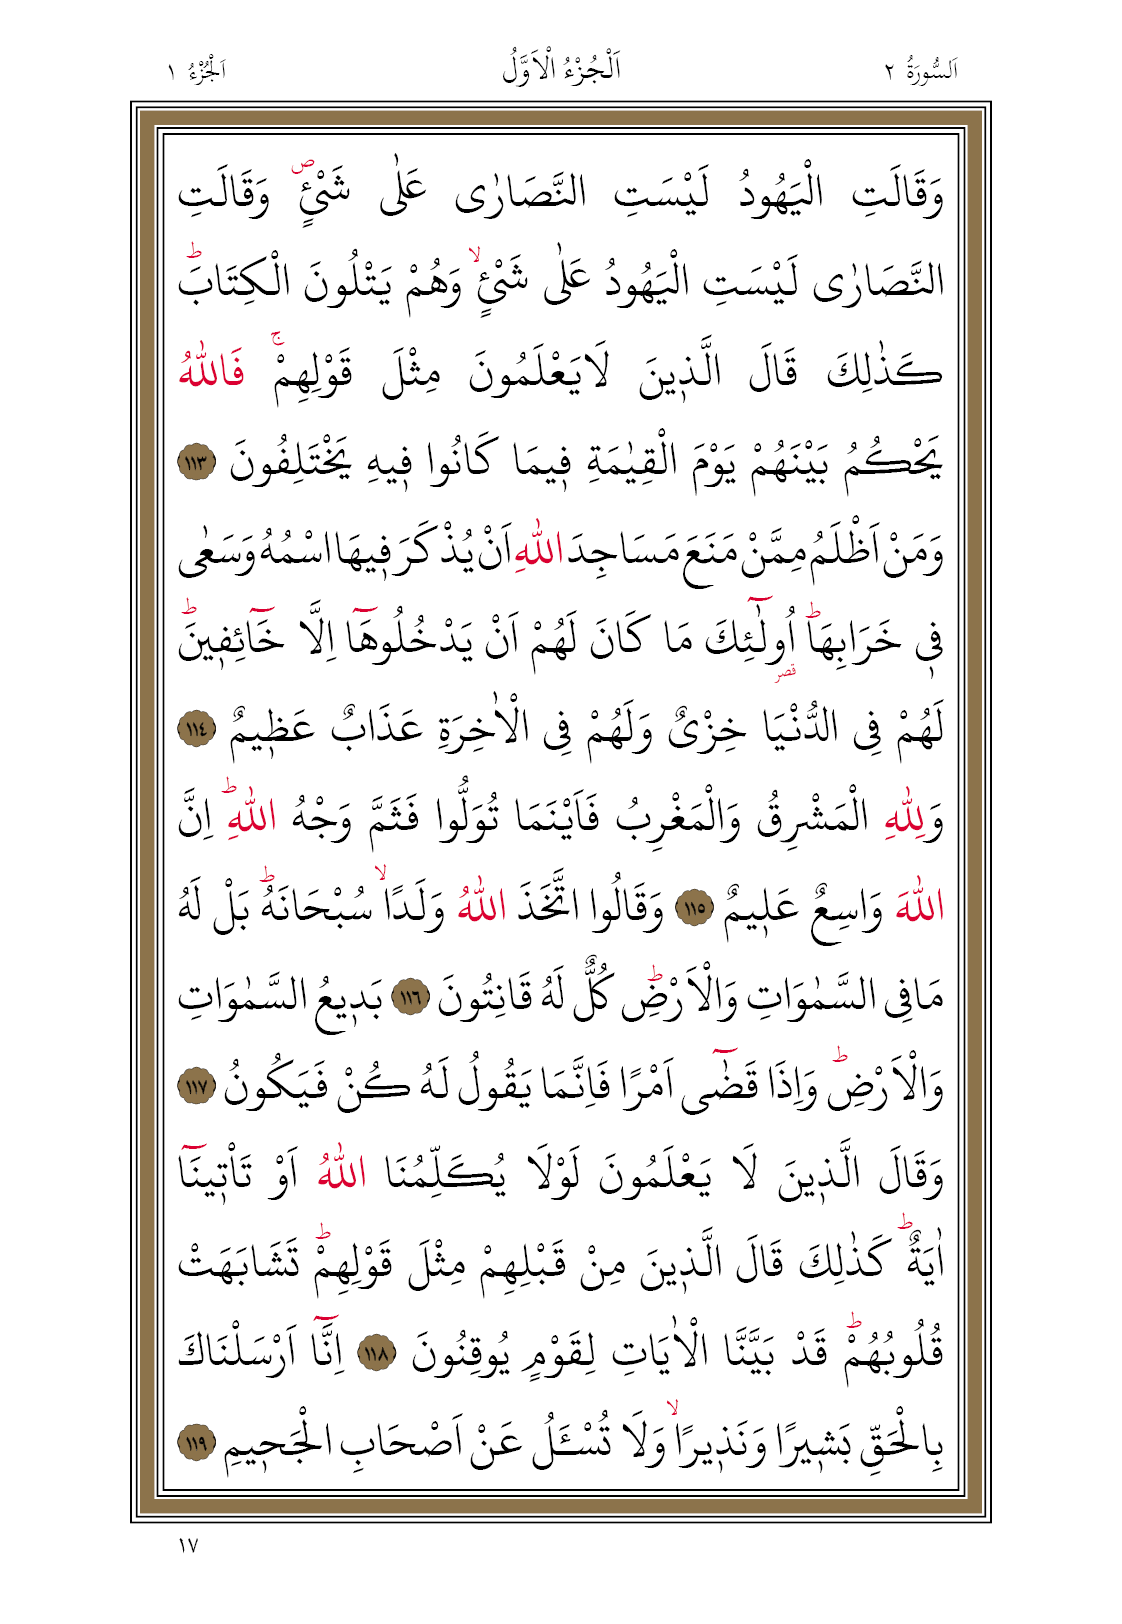 اَلسُّورَةُ ٢
اَلْجُزْءُ الْاَوَّلُ
اَلْجُزْءُ ١
وَقَالَتِ الْيَهُودُ لَيْسَتِ النَّصَارٰى عَلٰى شَيْءٍۖ وَقَالَتِ
النَّصَارٰى لَيْسَتِ الْيَهُودُ عَلٰى شَيْءٍۙ وَهُمْ يَتْلُونَ الْكِتَابَؕ
كَذٰلِكَ قَالَ الَّذ۪ينَ لَايَعْلَمُونَ مِثْلَ قَوْلِهِمْۚ فَاللّٰهُ
يَحْكُمُ بَيْنَهُمْ يَوْمَ الْقِيٰمَةِ ف۪يمَا كَانُوا ف۪يهِ يَخْتَلِفُونَ ١١٣
وَمَنْ اَظْلَمُ مِمَّنْ مَنَعَ مَسَاجِدَ اللّٰهِ اَنْ يُذْكَرَ ف۪يهَا اسْمُهُ وَسَعٰى
ف۪ي خَرَابِهَاؕ اُولٰٓئِكَ مَا كَانَ لَهُمْ اَنْ يَدْخُلُوهَٓا اِلَّا خَٓائِف۪ينَؕ
قصر
لَهُمْ فِى الدُّنْيَا خِزْىٌ وَلَهُمْ فِى الْاٰخِرَةِ عَذَابٌ عَظ۪يمٌ ١١٤
وَلِلّٰهِ الْمَشْرِقُ وَالْمَغْرِبُ فَاَيْنَمَا تُوَلُّوا فَثَمَّ وَجْهُ اللّٰهِؕ اِنَّ
اللّٰهَ وَاسِعٌ عَل۪يمٌ ١١٥ وَقَالُوا اتَّخَذَ اللّٰهُ وَلَدًاۙ سُبْحَانَهُؕ بَلْ لَهُ
مَافِى السَّمٰوَاتِ وَالْاَرْضِؕ كُلٌّ لَهُ قَانِتُونَ ١١٦ بَد۪يعُ السَّمٰوَاتِ
وَالْاَرْضِؕ وَاِذَا قَضٰٓى اَمْرًا فَاِنَّمَا يَقُولُ لَهُ كُنْ فَيَكُونُ ١١٧
وَقَالَ الَّذ۪ينَ لَا يَعْلَمُونَ لَوْلَا يُكَلِّمُنَا اللّٰهُ اَوْ تَأْت۪ينَٓا
اٰيَةٌؕ كَذٰلِكَ قَالَ الَّذ۪ينَ مِنْ قَبْلِهِمْ مِثْلَ قَوْلِهِمْؕ تَشَابَهَتْ
قُلُوبُهُمْؕ قَدْ بَيَّنَّا الْاٰيَاتِ لِقَوْمٍ يُوقِنُونَ ١١٨ اِنَّٓا اَرْسَلْنَاكَ
بِالْحَقِّ بَش۪يرًا وَنَذ۪يرًاۙ وَلَا تُسْـَٔلُ عَنْ اَصْحَابِ الْجَح۪يمِ ١١٩
١٧